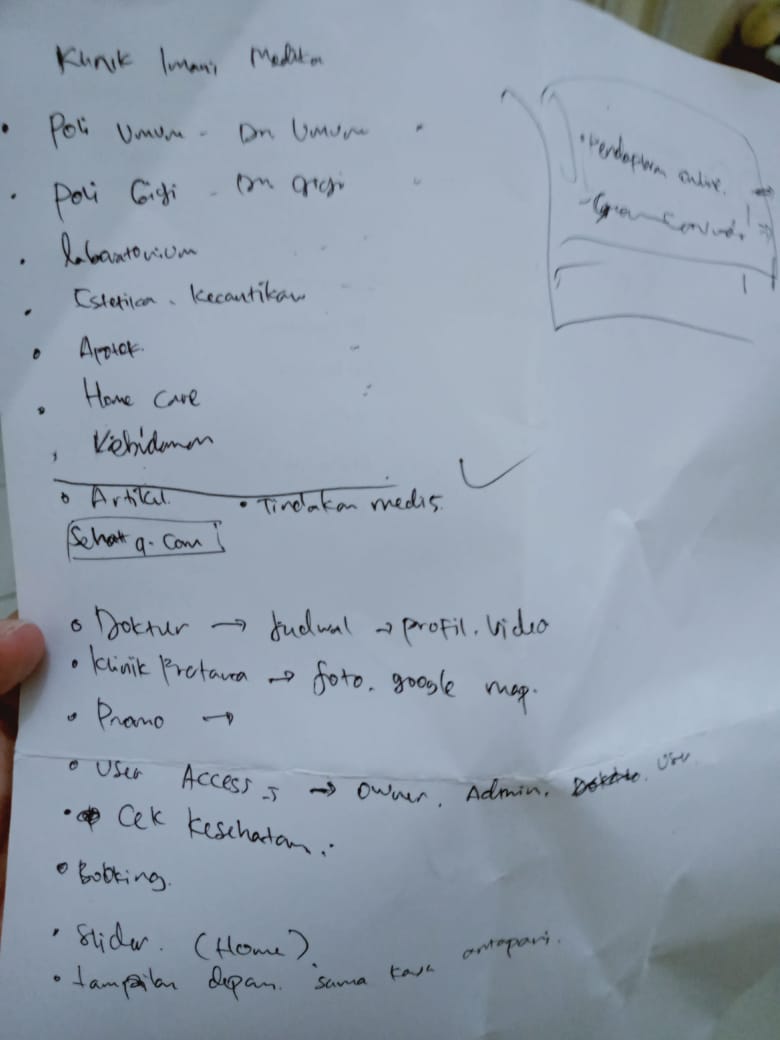 Klinik Imani Medika
• Poli Umum - Dr Umum
• Poli Gigi - Dr gigi
• Laboratorium
• Estetika. Kecantikan
• Apotek.
• Home Care
• Kebidanan
• Artikel. • Tindakan medis.
Sehatq.com
• Doktor → Jadwal → profil. Video
• Klinik Pratama → foto. google map.
• Promo →
• User Access → Owner. Admin. User
• Cek Kesehatan.
• Booking.
• Slider. (Home)
• tampilan depan. sama kaya
• Pendaftaran online.